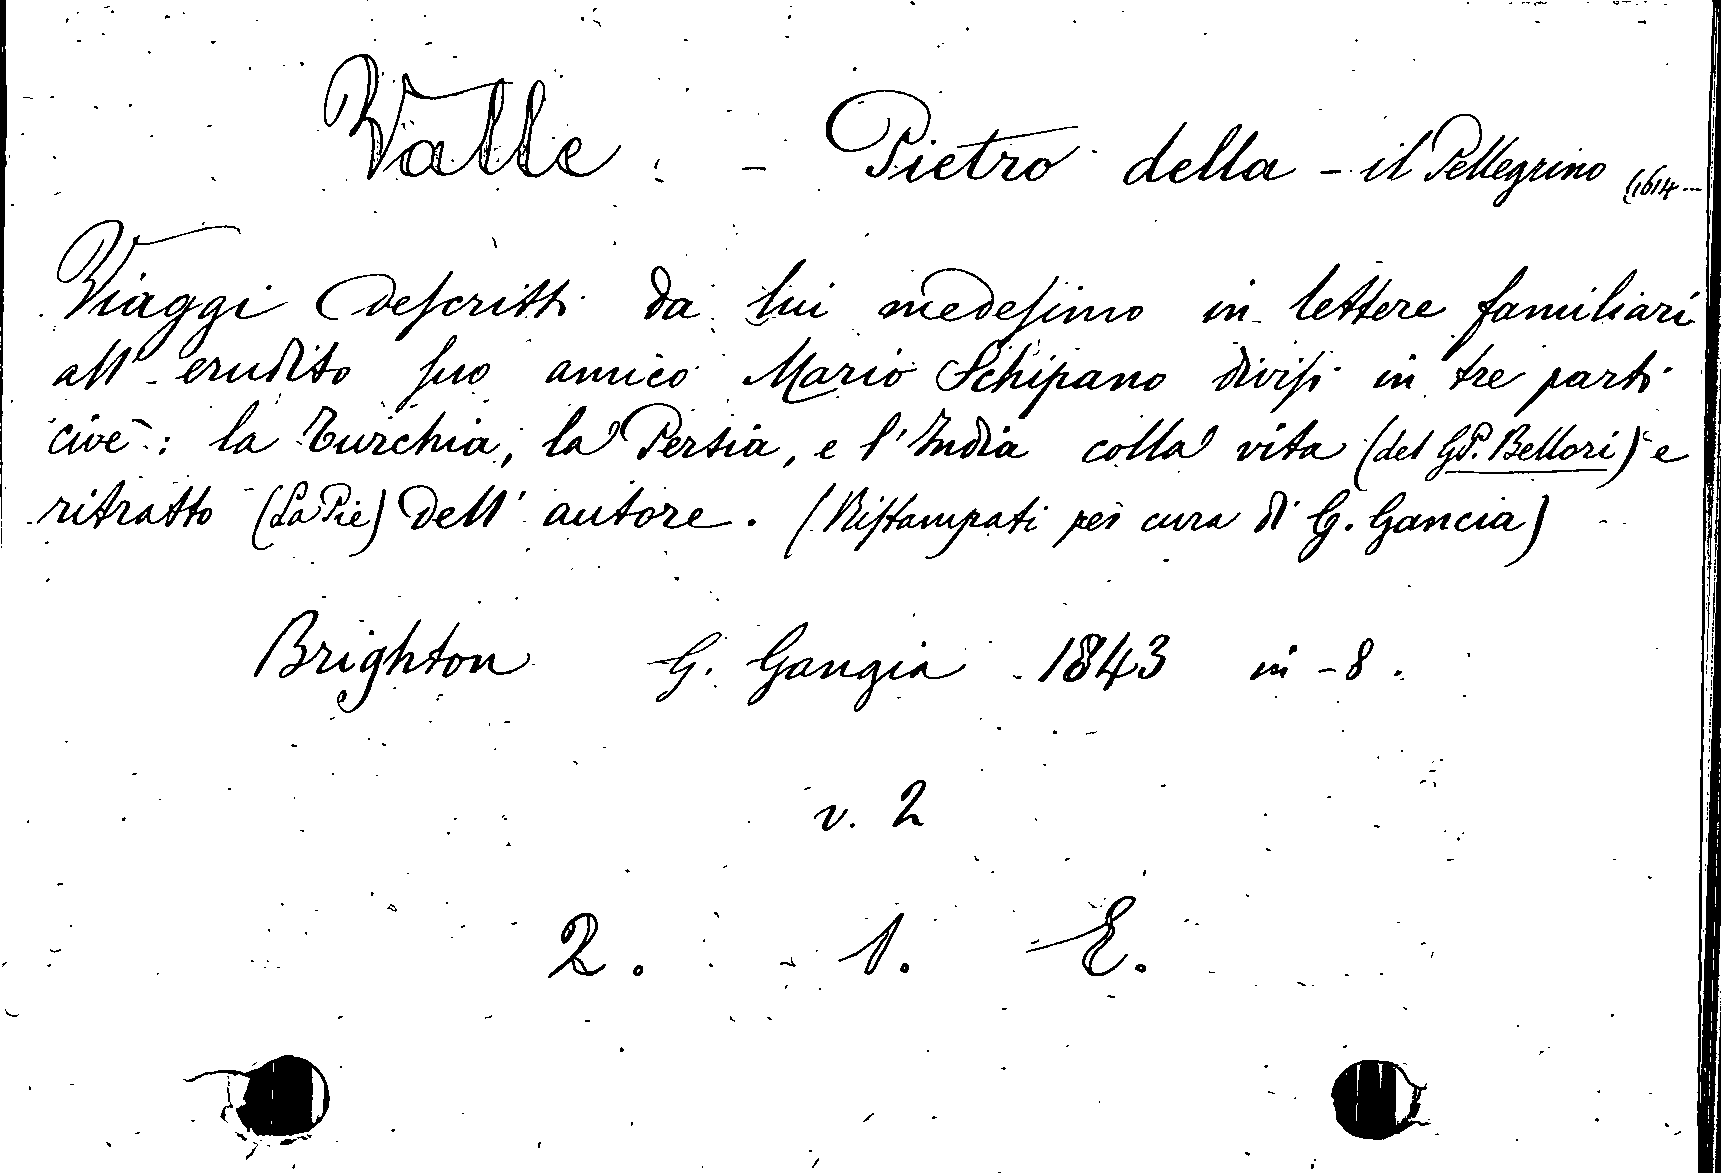 Valle - Pietro della - il Pellegrino (1614...
Viaggi descritti da lui medesimo in lettere familiari
all' erudito suo amico Mario Schipano divisi in tre parti
cioè: la Turchia, la Persia, e l'India colla vita (del G.P. Bellori) e
ritratto (La Pie) dell' autore. (Ristampati per cura di G. Gancia)
Brighton G. Gangia 1843 in-8.
v. 2
2. 1. E.